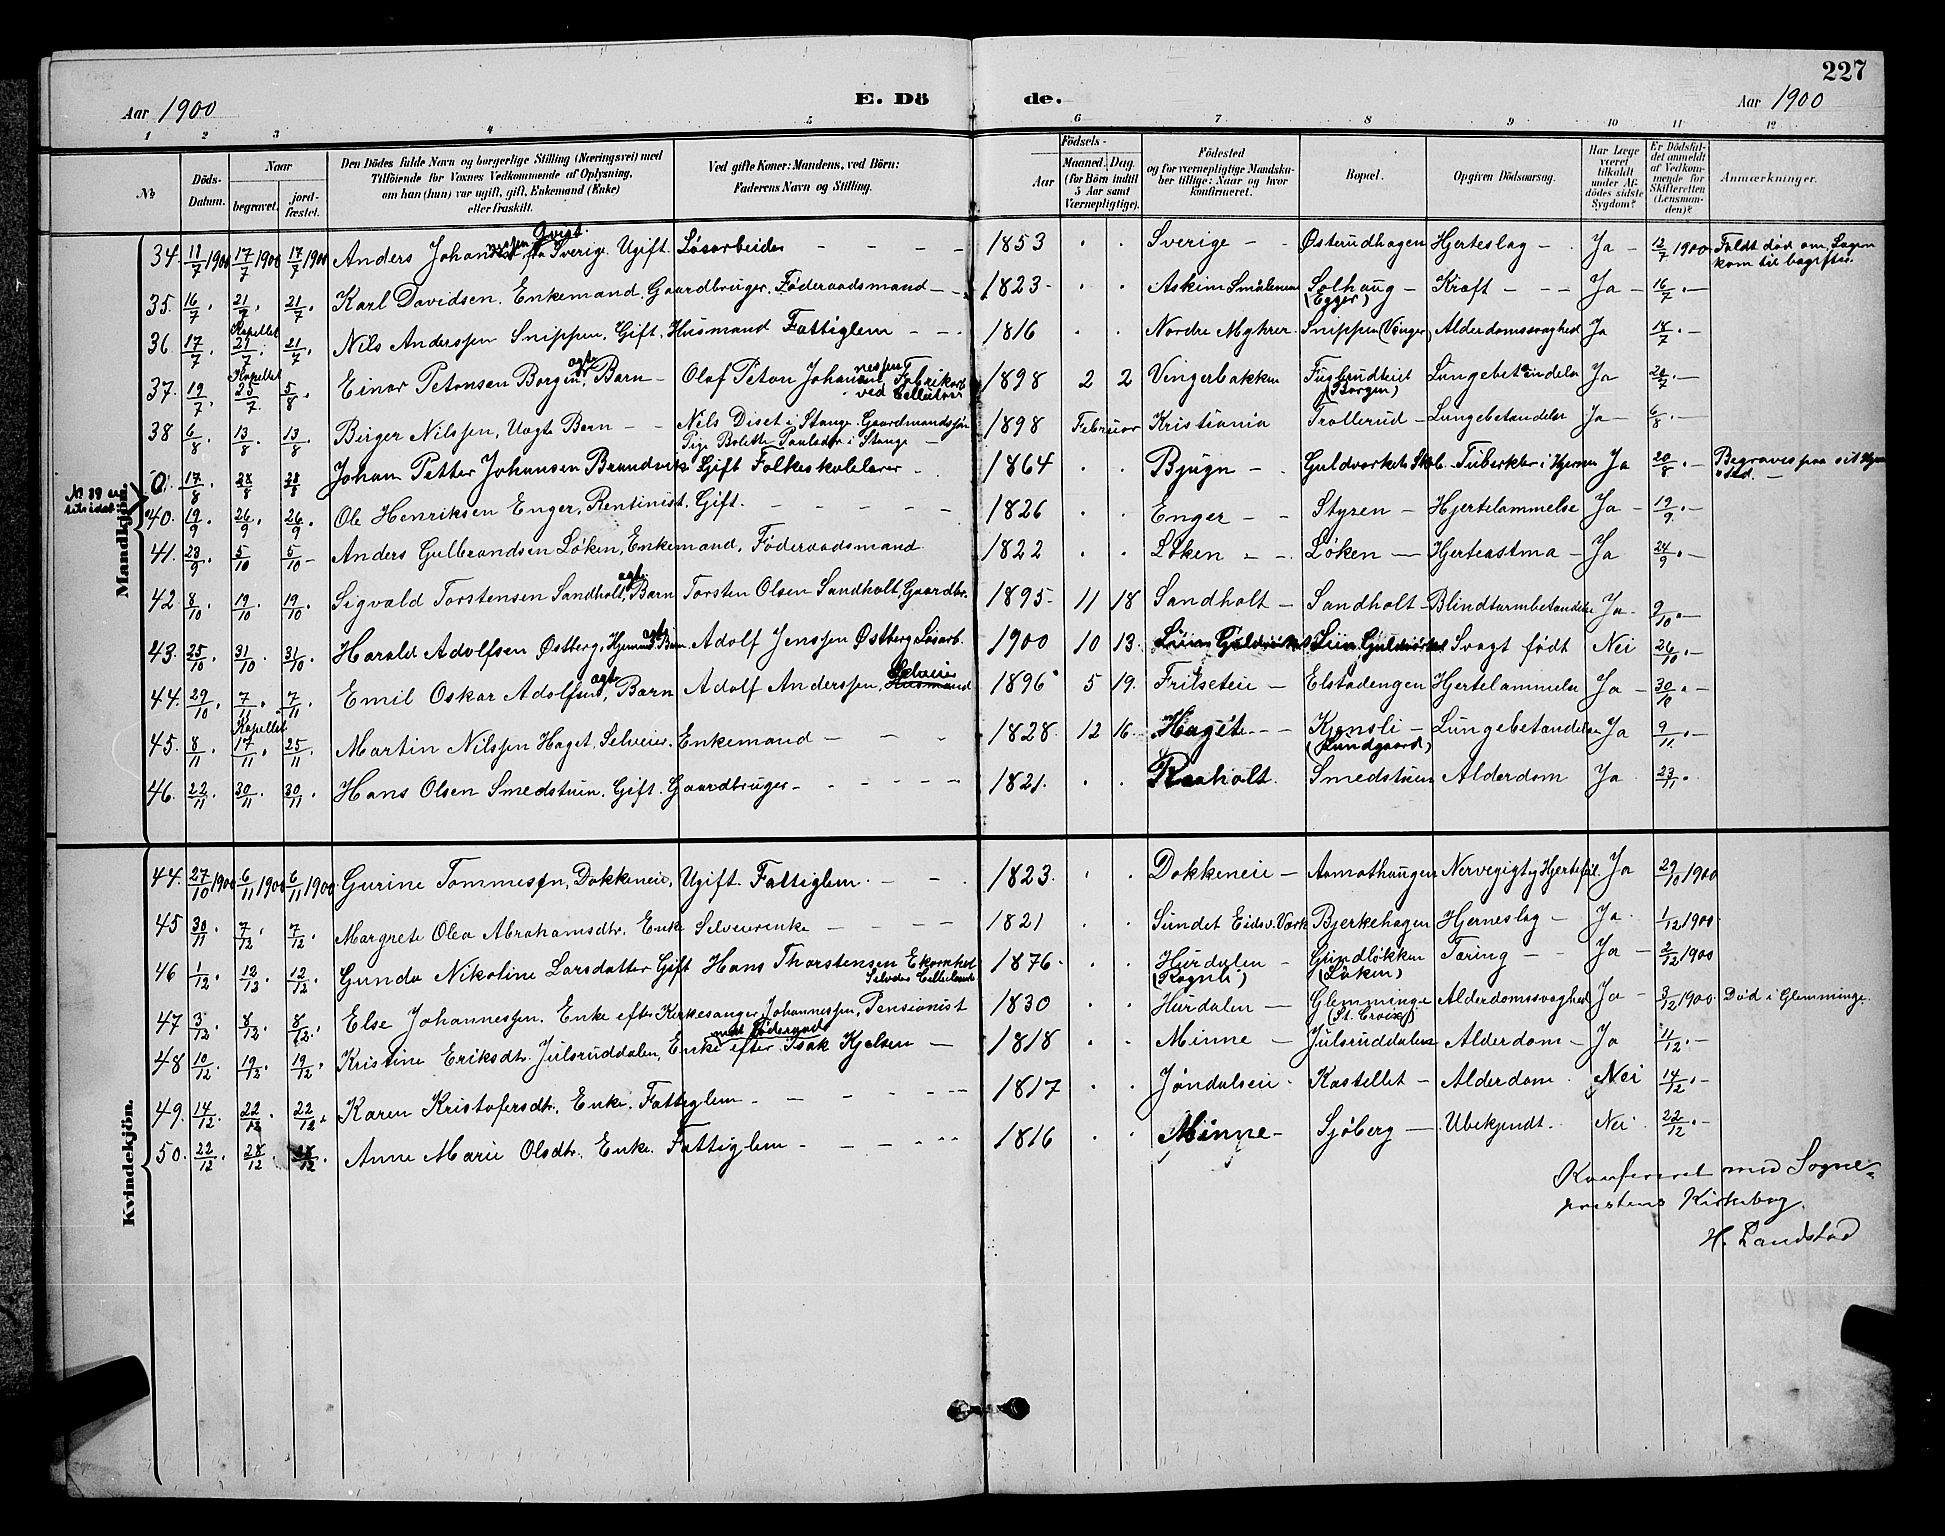 227
Aar 1900 E. Dö de. Aar 1900
1 2 3 4 5 6 7 8 9 10 11 12
No. Döds-Datum. Naar begravet. jordfæstet. Den Dödes fulde Navn og borgerlige Stilling (Næringsvei) med Tilföiende for Voxnes Vedkommende af Oplysning, om han (hun) var ugift, gift, Enkemand (Enke) eller fraskilt. Ved gifte Koner: Mandens, ved Börn: Faderens Navn og Stilling. Födsels- Aar Maaned. Dag. (for Börn indtil 5 Aar samt Værnepligtige). Födested og for værnepligtige Mandskaber tillige: Naar og hvor konfirmeret. Bopæl. Opgiven Dödsaarsag. Har Læge været tilkaldt under Afdödes sidste Sygdom? Er Dödsfaldet anmeldt af Vedkommende for Skifteretten (Lensmanden)? Anmærkninger.
Mandkjön.
34. 11/7 1900 17/7 1900 17/7 1900 Anders Johan Qvist fra Sverig. Ugift. Løsarbeider 1853 Sverige Østerudhagen Hjerteslag Ja 12/7 1900 Faldt død om, Lægen kom til bagefter.
35. 16/7 21/7 21/7 Karl Davidsen. Enkemand, Gaardbruger. Føderaadsmand 1823 Askim Smålenene Solhaug (Egger) Kræft Ja 16/7
36 17/7 Kapellet 21/7 21/7 Nils Anderssen Snippen, Gift, Husmand Fattiglem 1816 Nordre Myhrer Snippen (Venger) Alderdomssvaghed Ja 18/7
37. 19/7 Kapellet 25/7 5/8 Einar Petonsen Borgen, ægte Barn Olaf Peton Johannessen Fabrikarb. ved Cellulosen 1898 2 2 Vingerbakken Fuglrudteiet (Borgen) Lungebetændelse Ja 20/7
38 6/8 13/8 13/8 Birger Nilssen, Uægte Barn Nils Diset i Stange Gaardmandssøn Pige Bolette Paulsdr i Stange 1898 Februar Kristiania Trollerud Lungebetændelse Ja 6/8
No 39 er tilsidst
0. 17/8 28/8 28/8 Johan Petter Johansen Brandvik Gift Folkeskolelærer 1864 Bjugn Guldværkets Skole Tuberkler i Hjernen Ja 20/8 Begraves paa sit Hjemsted.
40. 19/9 26/9 26/9 Ole Henriksen Enger, Rentinist, Gift. 1826 Enger Styren Hjertelammelse Ja 19/9
41. 23/9 5/10 5/10 Anders Gulbrandsen Løken, Enkemand, Føderaadsmand 1822 Løken Løken Hjerteastma Ja 24/9
42 8/10 19/10 19/10 Sigvald Torstensen Sandholt, ægte Barn Torsten Olsen Sandholt, Gaardbr. 1895 11 18 Sandholt Sandholt Blindtarmbetændelse Ja 9/10
43. 25/10 31/10 31/10 Harald Adolfsen Østberg, Hjemmed. ægte Barn Adolf Jenssen Østberg Løsarb. 1900 10 13 Guldværket Guldværket Svagt født Nei 26/10
44. 29/10 7/11 7/11 Emil Oskar Adolfsen, ægte Barn Adolf Anderssen, Selveier Husmand 1896 5 19. Frilseteie Elstadengen Hjertelammelse Ja 30/10
45. 8/11 Kapellet 17/11 25/11 Martin Nilssen Haget, Selveier. Enkemand 1828. 12 16. Haget Konsli (Lundgaard) Lungebetændelse Ja 9/11
46. 22/11 30/11 30/11 Hans Olsen Smedstuen, Gift. Gaardbruger 1821. Raaholt Smedstuen Alderdom Ja 23/11
Kvindekjön.
44. 27/10 1900 6/11 1900 6/11 1900 Gurine Tommesøn, Dokkeneie, Ugift. Fattiglem 1823. Dokkeneie Aamothaugen Nervegigt og Hjertefeil Ja 29/10 1900
45 30/11 7/12 7/12 Margrete Olea Abrahamsdtr. Enke Selveierenke 1821 Sundet Eidsv. Værk Bjerkehagen Hjerneslag Ja 1/12 1900
46 1/12 12/12 12/12 Gunda Nikoline Larsdatter Gift Hans Thorstensen Ekornhol Selveier Cellulose 1876 Hurdalen (Rognli) Grindløkken (Løken) Tæring Ja 2/12 1900
47 3/12 8/12 8/12 Else Johannessen. Enke efter Kirkesanger Johannessen, Pensionist 1830 Hurdalen Glemminge (St. Croix) Alderdomssvaghed Ja 3/12 1900 Død i Glemminge
48 10/12 19/12 19/12 Kristine Eriksdtr. Julsruddalen, Enke efter Isak Kjelsen med Føderaad 1818 Minne Julsruddalen Alderdom Ja 11/12
49. 14/12 22/12 22/12 Karen Kristofersdtr. Enke. Fattiglem 1817 Jøndalseie Kastellet Alderdom Nei 14/12
50. 22/12 28/12 28/12 Anne Marie Olsdtr. Enke. Fattiglem 1816 Minne Sjøberg Ubekjendt. Nei 22/12
Konfereret med Sogne-
prestens Kirkebog.
H. Landstad